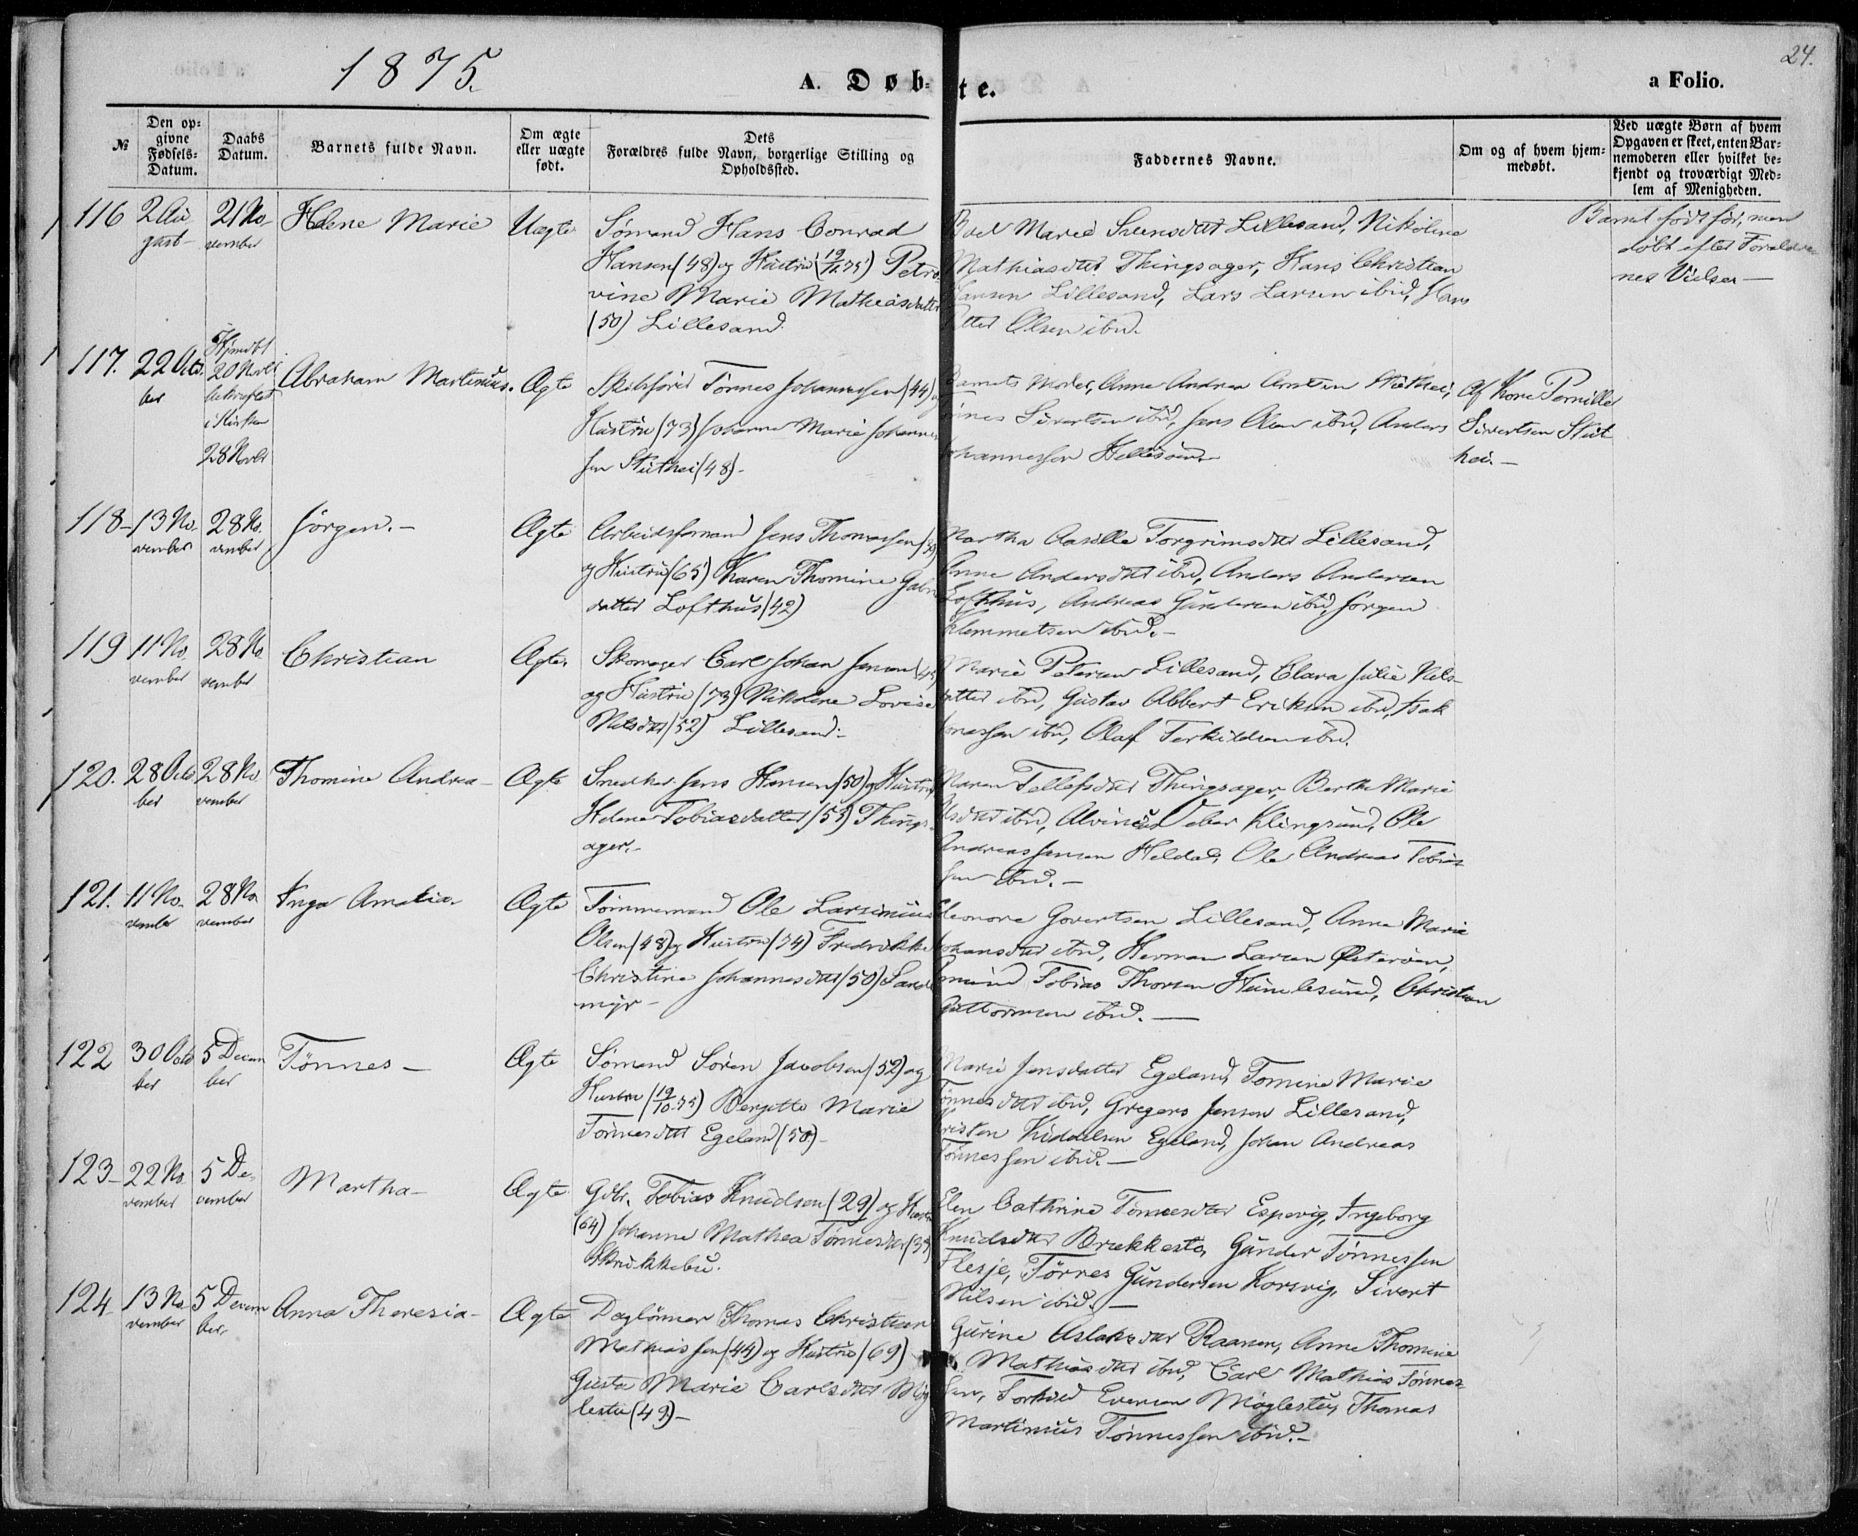 1875.
A. Døb=
te.
a Folio.
24.
№
Den op=
givne
Fødsels=
Datum.
Daabs
Datum.
Barnets fulde Navn.
Om ægte
eller uægte
født.
Dets
Forældres fulde Navn, borgerlige Stilling og
Opholdssted.
Faddernes Navne.
Om og af hvem hjem=
medøbt.
Ved uægte Børn af hvem
Opgaven er skeet, enten Bar=
nemoderen eller hvilket be=
kjendt og troværdigt Med=
lem af Menigheden.
116
2 Au
gust
21 No-
vember
Helene Marie
Uægte
Sømand Hans Conrad
Hansen (48) og Hustru (19/11 75) Petro
vine Marie Mathiasdatter
(50) Lillesand.
Marie Svensdtr Lillesand, Nikoline
Mathiasdtr Thingsager, Hans Christian
Hansen Lillesand, Lars Larsen ibid, Hans
Petter Olsen ibid.
Barnet født før, men
døbt efter Foraldre
nes Vielse —
117.
22 Octo
ber
Hjmdbt
20 Novbr
bekræftet
i Kirken
28 Novbr
Abraham Martinius.
Ægte
Skibsfører Tønnes Johannessen (44) og
Hustru (73) Johanne Marie Johannes
sen Skuthei (48) -
Barnets Moder, Anne Andrea Skuthei,
Tønnes Sivertsen ibid, Jens ibid, Anders
Johannessen Hellesund
Af Kone Pernille
Sivertsen Skut
hei. —
118 —
13 No-
vember
28 No.
vember
Jørgen. —
Ægte
Arbeidsformand Jens Thomassen
og Hustru (65) Karen Thomine Gabri
datter Lofthus (42)
Martha Aasille Torgrimsdtr Lillesand,
Anne Andersdtr ibid, Anders Andersen
Lofthus, Andreas Gundersen ibid, Jørgen
Klemmetsen ibid. —
119
11 No.
vember
28 No
vember
Christian
Ægte.
Skomager Carl Johan Jensen
og Hustru (73) Nikoline Lovise
Nilsdtr (52) Lillesand -
Marie Petersen Lillesand, Clara Julie Nils-
datter ibid, Gustav Albert Eriksen ibid, Isak
Jonassen ibid, Olaf Terkildsen ibid.
120.
28 Octo
ber
28 No
vember
Thomine Andrea —
Ægte
Snedker Jens Hansen (50) og Hustru
Helene Tobiasdatter (53) Things-
ager. —
Maren Tellefsdtr Thingsager, Berthe Marie
Olsdtr ibid, Alvine Klingsund, Ole
Andreas Jensen Heldal, Ole Andreas Tobias
sen ibid. —
121.
11 No.
vember
28 No
vember
Inga Amalia.
Ægte
Tømmermand Ole Larsinius
Olsen (48) og Hustru (74) Fredrikke
Christine Johannesdtr (50) Sand
myr -
Eleonore Govertsen Lillesand, Anne Marie
Johansdtr ibid, Herman Larsen Østerøen,
Tobias Thorsen Humlesund, Christian
Guttormsen ibid. —
122
30 Octo
ber
5 Decem
ber
Tønnes —
Ægte
Sømand Søren Jacobsen (52) og
Hustru (19/10 75) Bergitte Marie
Tønnesdtr Egeland (50) -
Marie Jensdatter Egeland, Tomine Marie
Tønnesdtr ibid, Gregers Jensen Lillesand,
Kristen Kiddelsen Egeland, Johan Andreas
Tønnessen ibid. —
123 —
22 No
vember
5 De-
cember
Martha —
Ægte
Gdbr. Tobias Knudsen (29) og Hustru
(64) Johanne Mathea Tønnesdtr (39)
Skrukkebu.
Elen Cathrine Tønnesdtr Espevig, Ingeborg
Knudsdtr Brækkestø, Gunder Tønnessen
Flesje, Tørres Gundersen Korsvig, Sivert
Nilsen ibid. —
124
13 No
vember
5 Decem
ber.
Anna Theresia —
Ægte
Daglønner Thomas Christian
Mathiassen (44) og Hustru (69)
Gusta Marie Carlsdtr Møg
lestu (49) —
Gurine Aslaksdtr Raanen, Anne Thomine
Mathiasdtr ibid, Carl Mathias Tønnes-
sen, Torkild Evensen Møglestu, Thomas
Martinius Tønnessen ibid. —